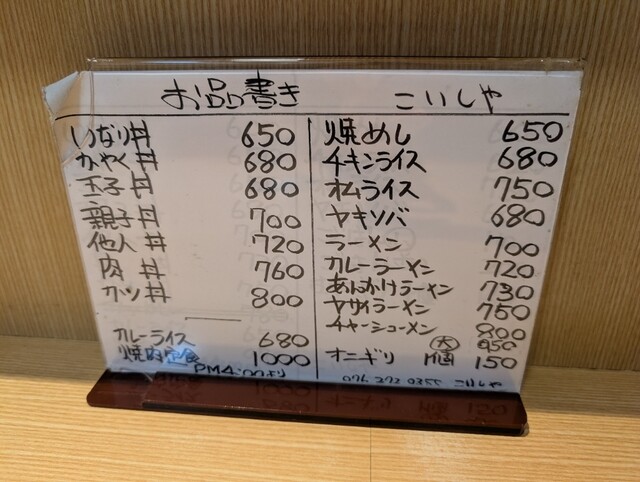 お品書き こいしや
いなり丼 650
かやく丼 680
玉子丼 680
親子丼 700
他人丼 720
肉丼 760
カツ丼 800
カレーライス 680
焼肉定食 1000
PM4:00より
焼めし 650
チキンライス 680
オムライス 750
ヤキソバ 680
ラーメン 700
カレーラーメン 720
あんかけラーメン 730
ヤサイラーメン 750
チャーシューメン 800
大 950
オニギリ 1個 150
076 272 0355 こいしや